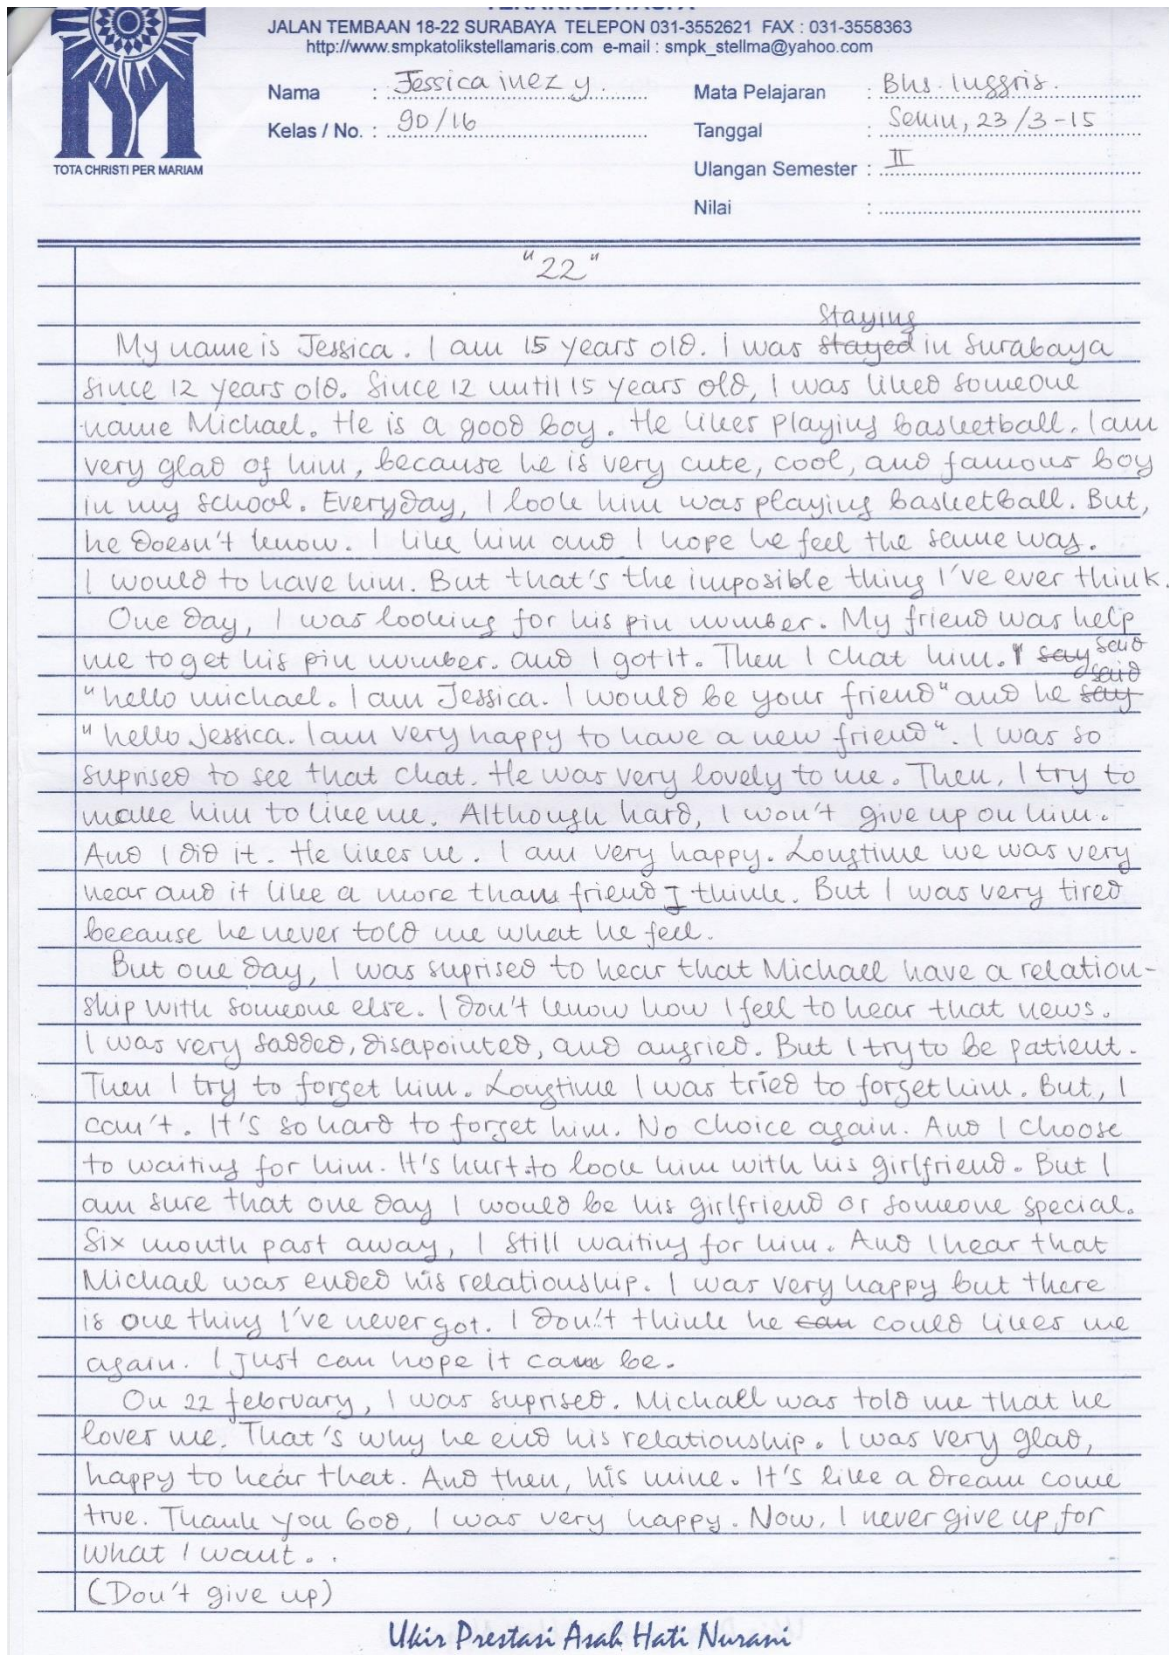 JALAN TEMBAAN 18-22 SURABAYA TELEPON 031-3552621 FAX : 031-3558363
http://www.smpkatolikstellamaris.com e-mail : smpk_stellma@yahoo.com
TOTA CHRISTI PER MARIAM
Nama : Jessica inez y.
Kelas / No. : 9D/16
Mata Pelajaran : Bhs. Inggris.
Tanggal : Senin, 23/3-15
Ulangan Semester : II
Nilai :
"22"
staying
My name is Jessica. I am 15 years old. I was stayed in Surabaya
since 12 years old. Since 12 until 15 years old, I was liked someone
name Michael. He is a good boy. He likes playing basketball. I am
very glad of him, because he is very cute, cool, and famous boy
in my school. Everyday, I look him was playing basketball. But,
he doesn't know. I like him and I hope he feel the same way.
I would to have him. But that's the imposible thing I've ever think.
One day, I was looking for his pin number. My friend was help
me to get his pin number. and I got it. Then I chat him. I say said
"hello michael. I am Jessica. I would be your friend" and he say said
"hello Jessica. I am very happy to have a new friend". I was so
suprised to see that chat. He was very lovely to me. Then, I try to
make him to like me. Although hard, I won't give up on him.
And I did it. He likes me. I am very happy. Longtime we was very
near and it like a more than friend I think. But I was very tired
because he never told me what he feel.
But one day, I was suprised to hear that Michael have a relation-
ship with someone else. I don't know how I feel to hear that news.
I was very sadded, disapointed, and angried. But I try to be patient.
Then I try to forget him. Longtime I was tried to forget him. But, I
can't. It's so hard to forget him. No choice again. And I choose
to waiting for him. It's hurt to look him with his girlfriend. But I
am sure that one day I would be his girlfriend or someone special.
Six month past away, I still waiting for him. And I hear that
Michael was ended his relationship. I was very happy but there
is one thing I've never got. I don't think he can could likes me
again. I just can hope it can be.
On 22 february, I was suprised. Michael was told me that he
loves me. That's why he end his relationship. I was very glad,
happy to hear that. And then, his mine. It's like a dream come
true. Thank you God, I was very happy. Now, I never give up for
what I want. . .
(Don't give up)
Ukir Prestasi Asah Hati Nurani